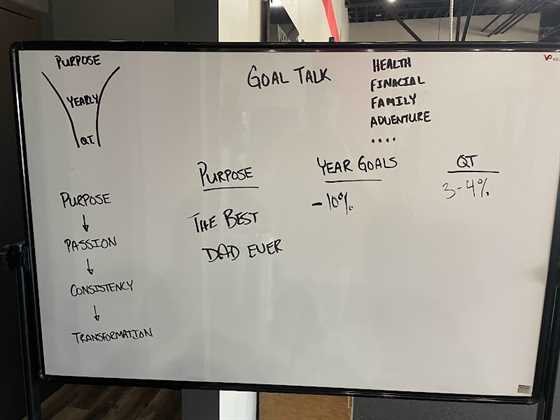 PURPOSE
YEARLY
QT.
GOAL TALK
HEALTH
FINACIAL
FAMILY
ADVENTURE
....
PURPOSE
PASSION
CONSISTENCY
TRANSFORMATION
PURPOSE
THE BEST
DAD EVER
YEAR GOALS
-10%
QT
3-4%